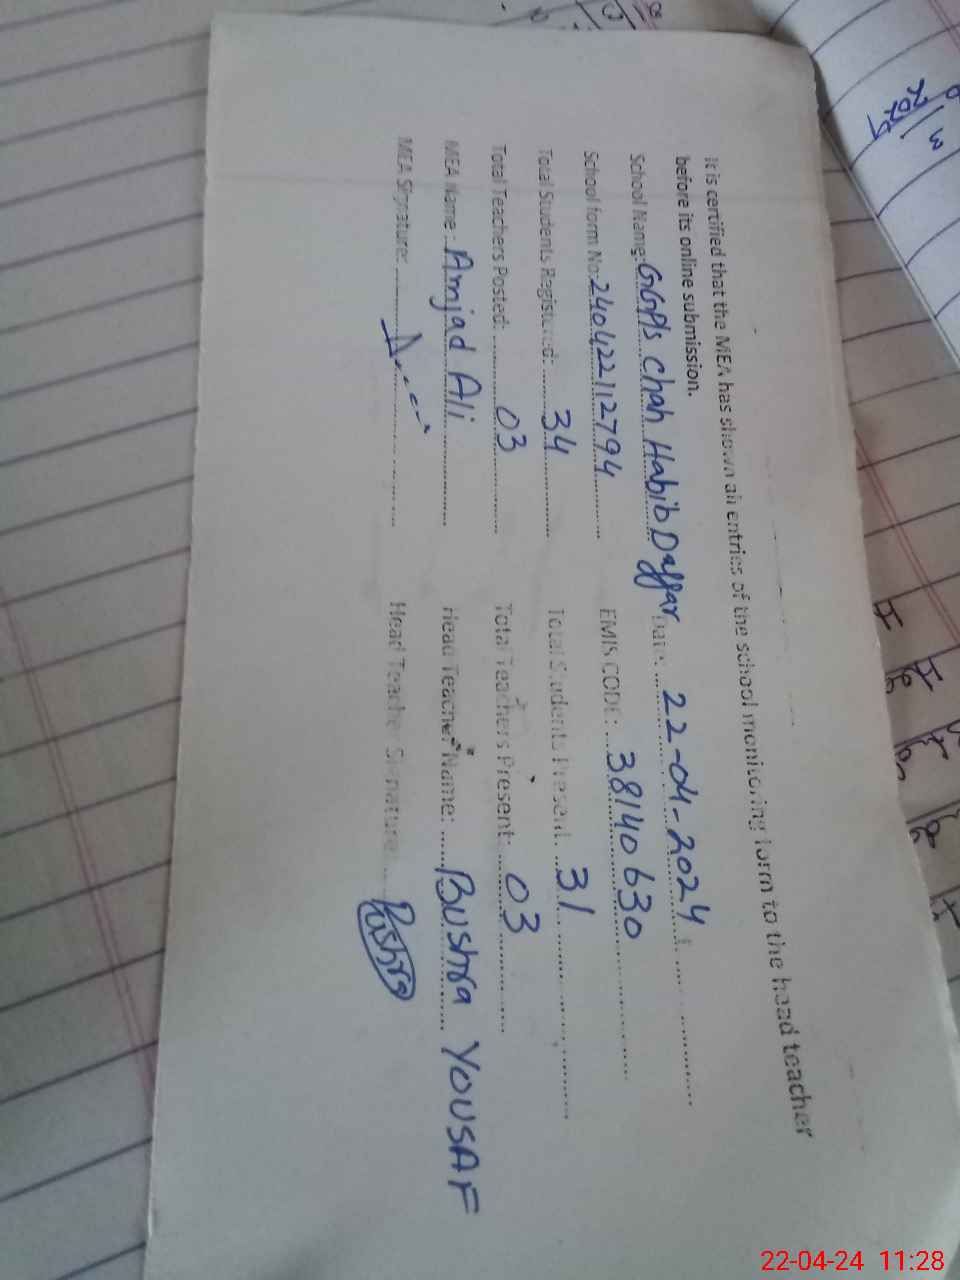 It is certified that the MEA has shown all entries of the school monitoring form to the head teacher
before its online submission.
School Name: GGPS Chah Habib Daffar Date: 22-04-2024
School form No: 240422112794 EMIS CODE: 38140630
Total Students Registered: 34 Total Students Present: 31
Total Teachers Posted: 03 Total Teachers Present: 03
MEA Name: Amjad Ali Head Teacher Name: Bushra YOUSAF
MEA Signature: Head Teacher Signature: Bushra
22-04-24 11:28